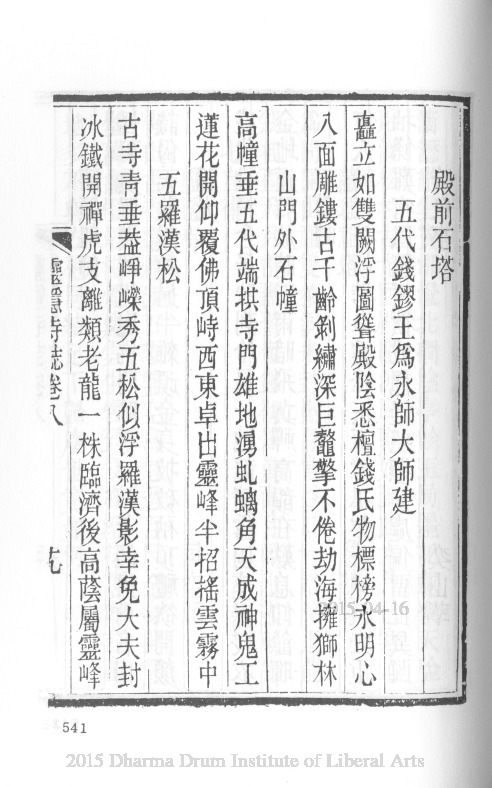 殿前石塔
五代錢鏐王爲永師大師建
矗立如雙闕浮圖聳殿陰悉檀錢氏物標榜永明心
入面雕鏤古千齡剎繡深巨鼇擎不倦劫海擁獅林
山門外石幢
高幢垂五代端拱寺門雄地湧虬螭角天成神鬼工
蓮花開仰覆佛頂峙西東卓出靈峰半招搖雲霧中
五羅漢松
古寺靑垂葢崢嶸秀五松似浮羅漢影幸免大夫封
冰鐵開禪虎支離類老龍一株臨濟後高蔭屬靈峰
靈隱寺誌卷八
九
541
2015-04-16
2015 Dharma Drum Institute of Liberal Arts